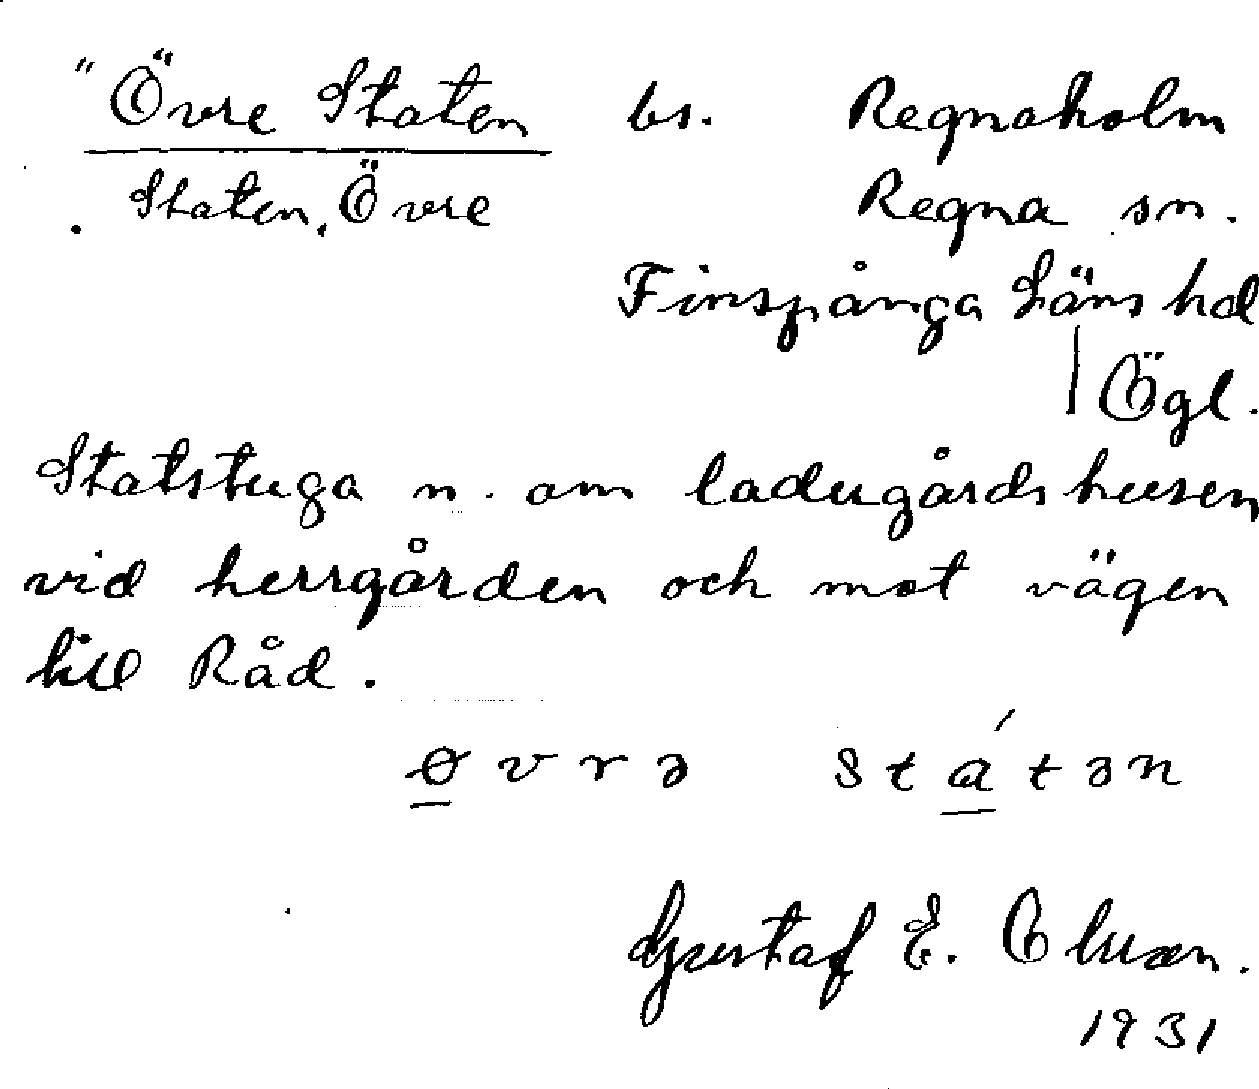 "Övre Staten bs. Regnaholm
Staten, Övre Regna sn.
Finspånga Läns hd
Ögl.
Statstuga n. om ladugårdshusen
vid herrgården och mot vägen
till Råd.
øvrə státən
Gustaf E.
1931